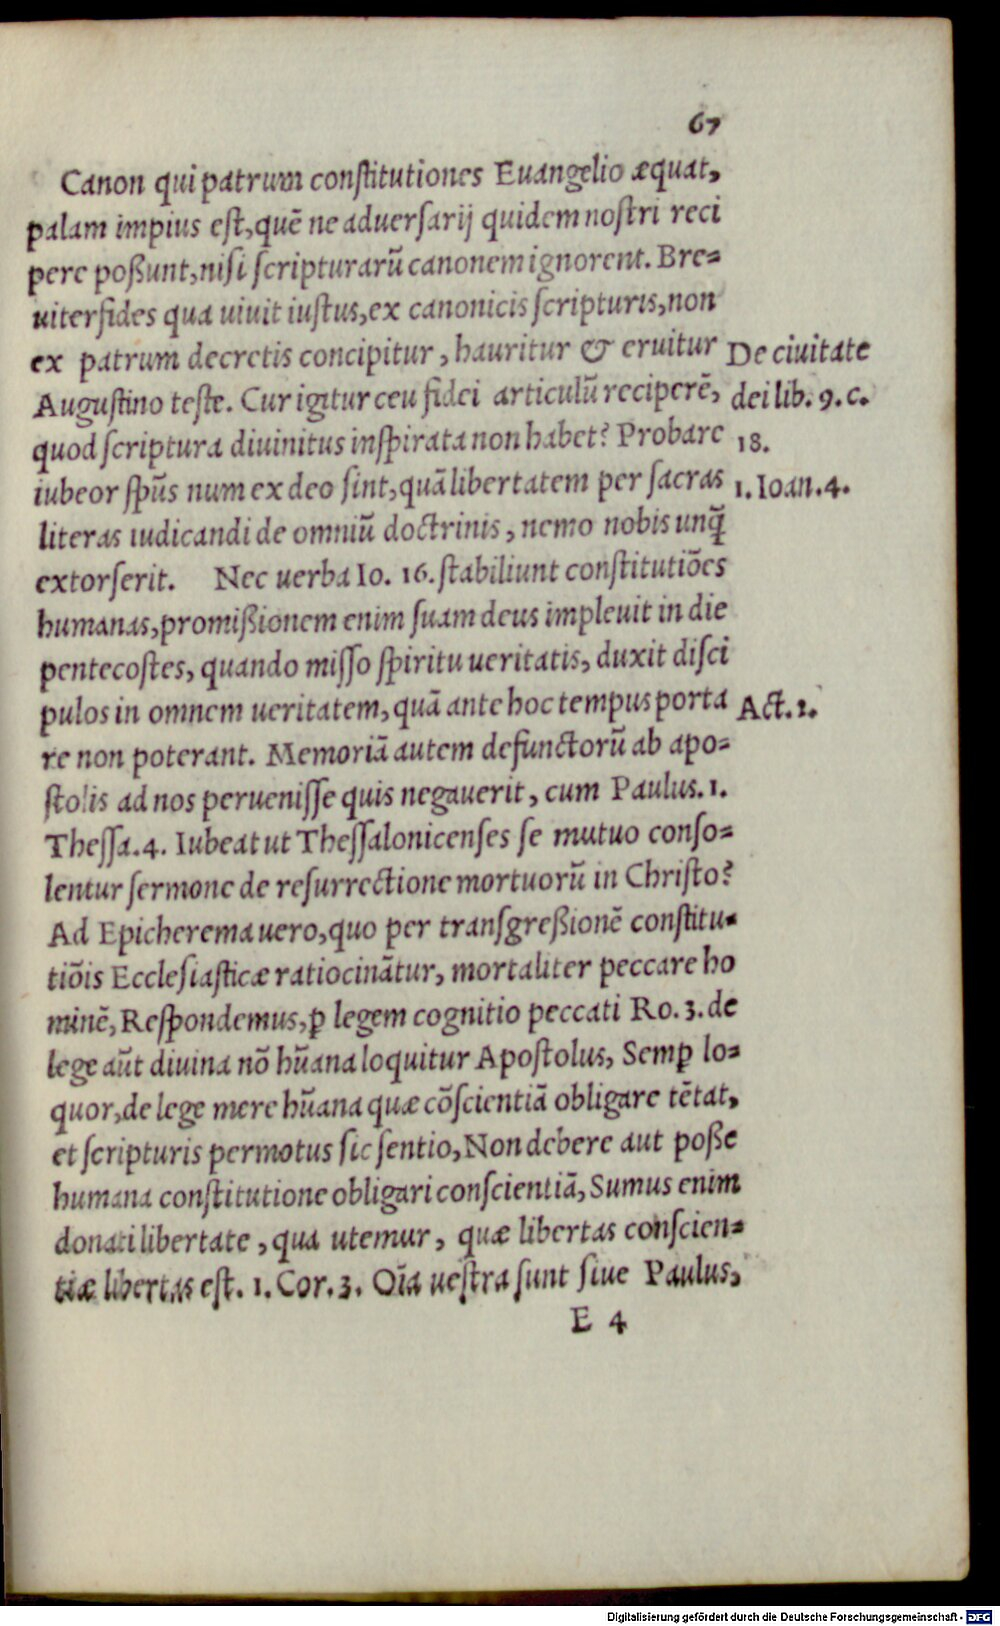 67
Canon qui patrum conſtitutiones Euangelio æquat,
palam impius eſt, quē ne aduerſarij quidem noſtri reci
pere poßunt, niſi ſcripturarū canonem ignorent. Bre=
uiter fides qua uiuit iuſtus, ex canonicis ſcripturis, non
ex patrum decretis concipitur, hauritur & eruitur
De ciuitate
Auguſtino teſte. Cur igitur ceu fidei articulū reciperē,
dei lib. 9. c.
quod ſcriptura diuinitus inſpirata non habet? Probare
18.
iubeor ſpūs num ex deo ſint, quā libertatem per ſacras
1. Ioan. 4.
literas iudicandi de omniū doctrinis, nemo nobis unq̃
extorſerit. Nec uerba Io. 16. ſtabiliunt conſtitutiōes
humanas, promißionem enim ſuam deus impleuit in die
pentecoſtes, quando miſſo ſpiritu ueritatis, duxit diſci
pulos in omnem ueritatem, quā ante hoc tempus porta
Act. 1.
re non poterant. Memoriā autem defunctorū ab apo=
ſtolis ad nos perueniſſe quis negauerit, cum Paulus. 1.
Theſſa. 4. Iubeat ut Theſſalonicenſes ſe mutuo conſo=
lentur ſermone de reſurrectione mortuorū in Chriſto?
Ad Epicherema uero, quo per tranſgreßionē conſtitu=
tiōis Eccleſiaſticæ ratiocinātur, mortaliter peccare ho
minē, Reſpondemus, ꝑ legem cognitio peccati Ro. 3. de
lege aūt diuina nō hūana loquitur Apoſtolus, Semꝑ lo=
quor, de lege mere hūana quæ cōſcientiā obligare tētat,
et ſcripturis permotus ſic ſentio, Non debere aut poße
humana conſtitutione obligari conſcientiā, Sumus enim
donati libertate, qua utemur, quæ libertas conſcien=
tiæ libertas eſt. 1. Cor. 3. Oīa ueſtra ſunt ſiue Paulus,
E 4
Digitalisierung gefördert durch die Deutsche Forschungsgemeinschaft - DFG